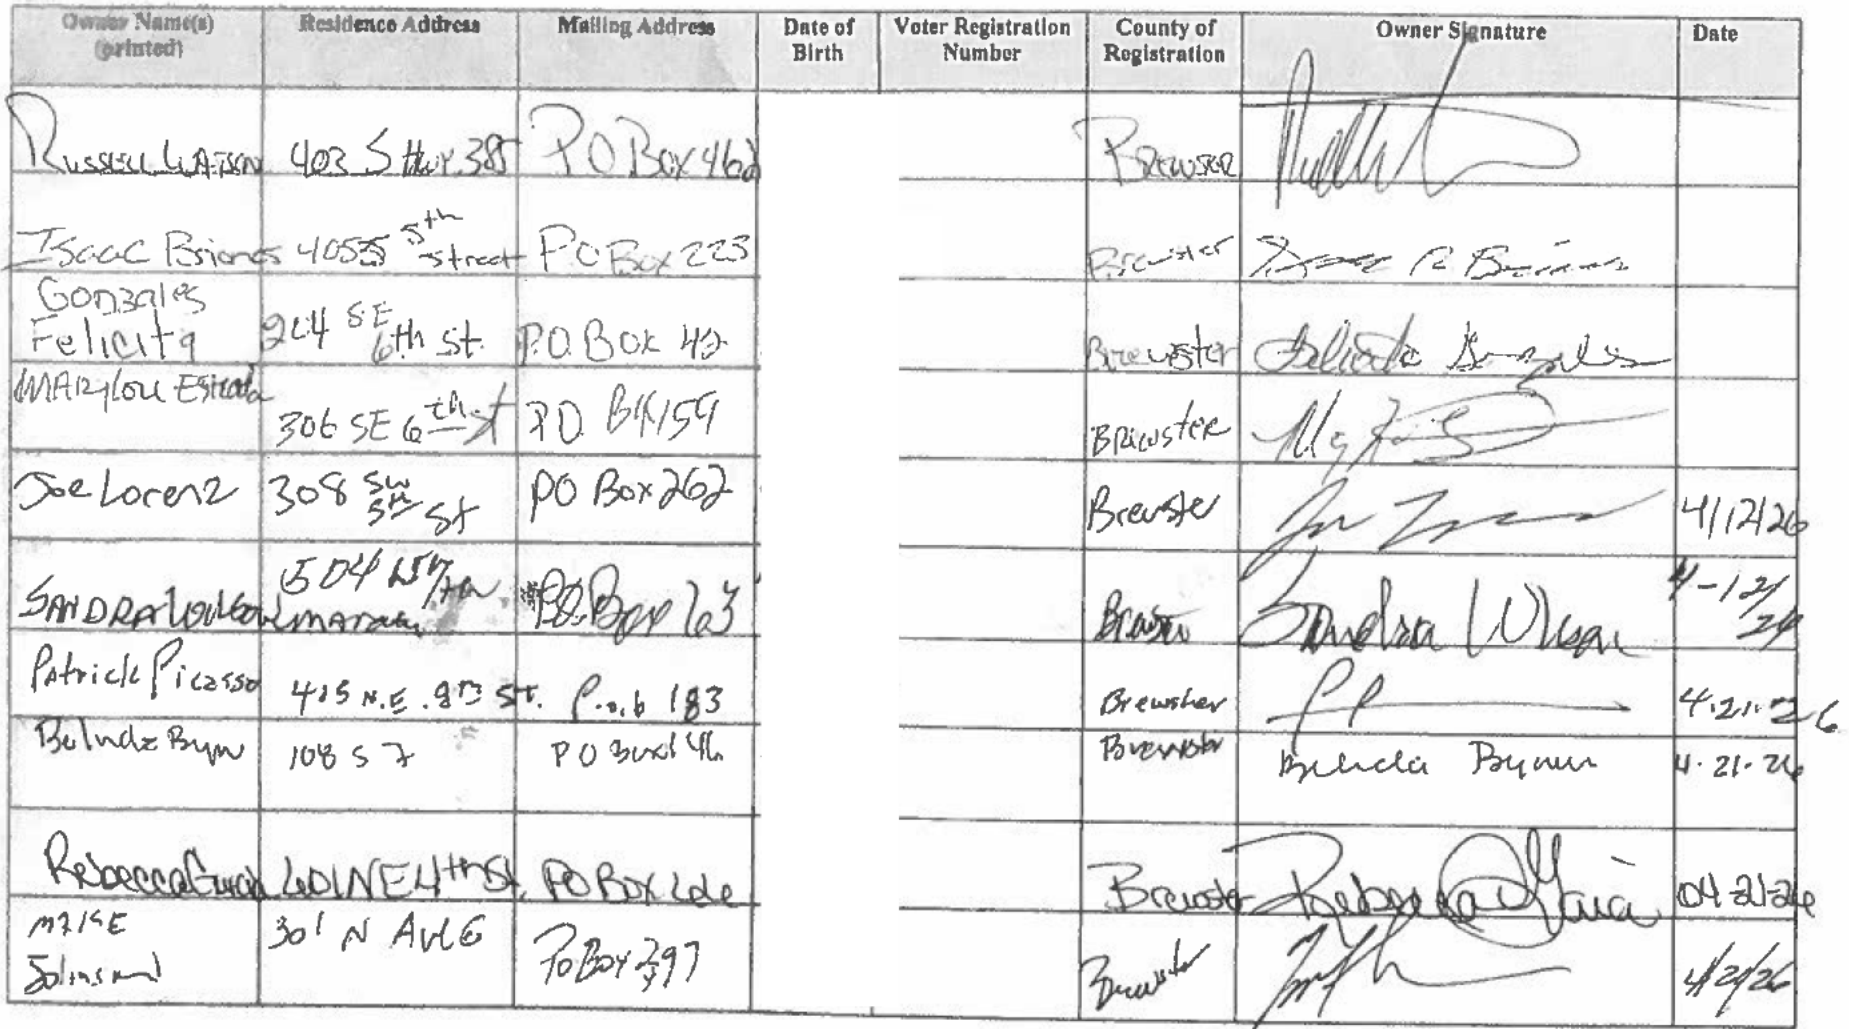 Owner Name(s) (printed) Residence Address Mailing Address Date of Birth Voter Registration Number County of Registration Owner Signature Date
Russell Watson 403 S Hwy 385 P.O Box 462 Brewster
Isaac Briones 405 5th Street P.O Box 223 Brewster Isaac R Briones
Gonzales Felicita 204 SE 6th St. P.O. Box 42 Brewster Felicita Gonzales
MARYlou Estrada 306 SE 6th St P.O. BX 159 Brewster
Joe Lorenz 308 SW 5th St PO Box 262 Brewster 4/12/26
SANDRA 504 Marathon P.O. Box 163 Sandra Wilson 4-12/26
Patrick Picasso 415 N.E. 8th ST. P.o.b 183 Brewsher PP 4.21.26
Belinda Bynum 108 S 7 PO Box 146 Brewster Belinda Bynum 4.21.26
Rebecca Garcia 601 NE 4th St. PO Box Brewster Rebecca Garcia 04-21-26
MIKE Johnson 301 N AVE G Po Box 297 Brewster 4/21/26